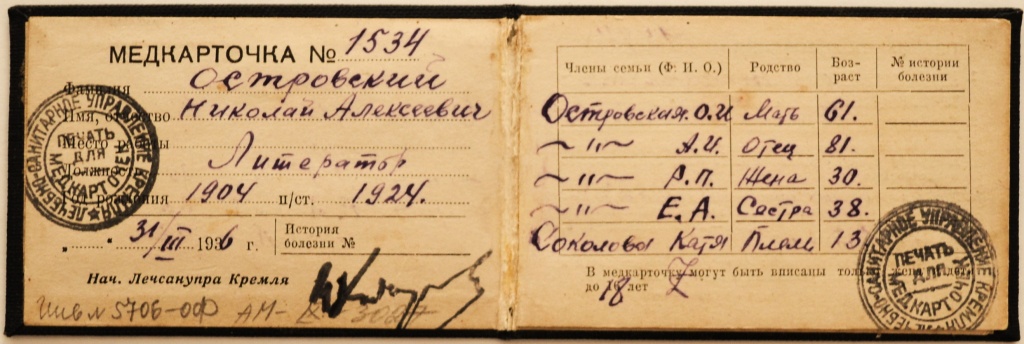 МЕДКАРТОЧКА № 1534
Фамилия Островский
Имя, отчество Николай Алексеевич
Место работы
Должность Литератор
рождения 1904 п/ст. 1924.
31/III 1936 г. История болезни №
Нач. Лечсанупра Кремля
Инв № 5706-ОФ
ЛЕЧЕБНО-САНИТАРНОЕ УПРАВЛЕНИЕ КРЕМЛЯ
ПЕЧАТЬ
ДЛЯ
МЕДКАРТОЧЕК
Члены семьи (Ф. И. О.) Родство Возраст № истории болезни
Островская О.И Мать 61.
~"~ А.И. Отец 81.
~"~ Р.П. Жена 30.
~"~ Е.А. Сестра 38.
Соколова Катя Плем 13
В медкарточку могут быть вписаны только жена
до 18 лет
ЛЕЧЕБНО-САНИТАРНОЕ УПРАВЛЕНИЕ КРЕМЛЯ
ПЕЧАТЬ
ДЛЯ
МЕДКАРТОЧЕК